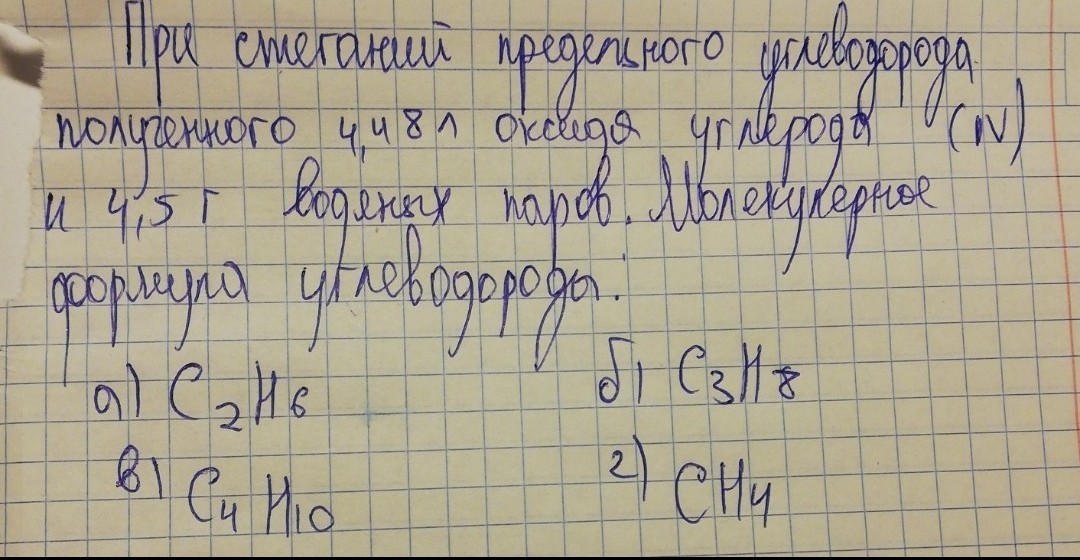 При сжегании предельного углеводорода
полученного 4,48л оксида углерода (IV)
и 4,5 г водяных паров. Молекулярное
формула углеводороды:
а) C₂H₆ б) C₃H₈
в) C₄H₁₀ г) CH₄